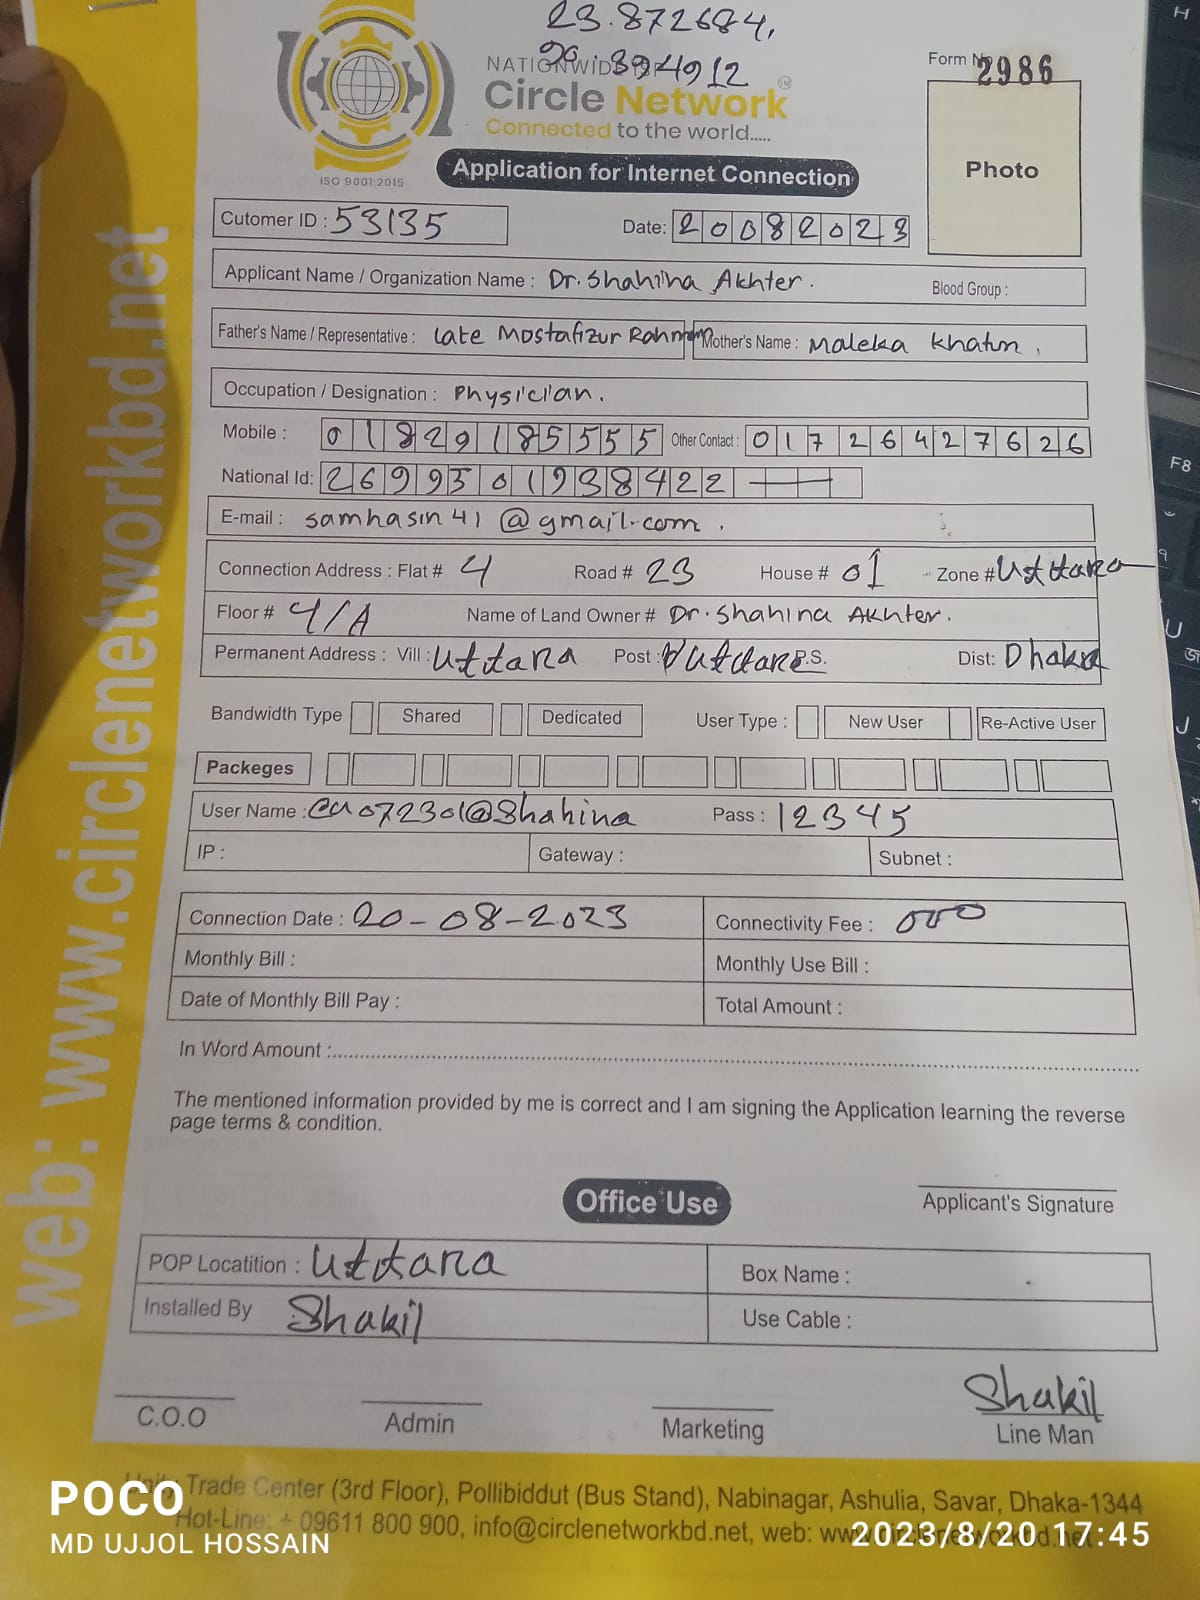 23.872684,
90.394912
NATIONWIDE ISP
Circle Network
Connected to the world.....
ISO 9001:2015
Form No
2986
Photo
Application for Internet Connection
Cutomer ID : 53135
Date: 20082023
Applicant Name / Organization Name : Dr. Shahina Akhter.
Blood Group :
Father's Name / Representative : Late Mostafizur Rahman
Mother's Name : Maleka Khatun,
Occupation / Designation : Physician.
Mobile : 01829185555 Other Contact : 01726427626
National Id: 2699501938422
E-mail : samhasin41@gmail.com.
Connection Address : Flat # 4 Road # 23 House # 01 Zone # Uttara
Floor # 4/A Name of Land Owner # Dr. Shahina Akhter.
Permanent Address : Vill : Uttara Post : Uttara P.S. Dist: Dhaka
Bandwidth Type Shared Dedicated User Type : New User Re-Active User
Packeges
User Name : cn072301@Shahina Pass : 12345
IP : Gateway : Subnet :
Connection Date : 20-08-2023 Connectivity Fee : 000
Monthly Bill : Monthly Use Bill :
Date of Monthly Bill Pay : Total Amount :
In Word Amount :
The mentioned information provided by me is correct and I am signing the Application learning the reverse
page terms & condition.
Applicant's Signature
Office Use
POP Locatition : Uttara Box Name :
Installed By Shakil Use Cable :
Shakil
C.O.O Admin Marketing Line Man
Unity Trade Center (3rd Floor), Pollibiddut (Bus Stand), Nabinagar, Ashulia, Savar, Dhaka-1344
Hot-Line: + 09611 800 900, info@circlenetworkbd.net, web: www.circlenetworkbd.net
web: www.circlenetworkbd.net
POCO
MD UJJOL HOSSAIN
2023/8/20 17:45
H
F8
U
J